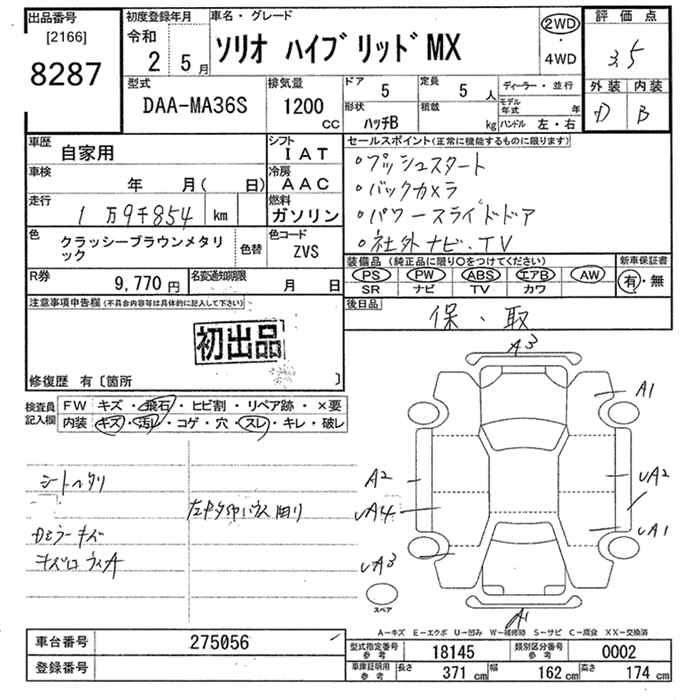 出品番号
[2166]
8287
初度登録年月
令和
2 5月
車名・グレード
ソリオ ハイブリッドMX
2WD
4WD
評価点
3.5
外装 内装
D B
型式
DAA-MA36S
排気量
1200
cc
ドア
5
定員
5人
形状
ハッチB
積載
kg
ディーラー・並行
モデル年式 年
ハンドル 左・右
車歴
自家用
シフト
IAT
車検
年 月( 日)
冷房
AAC
走行
1万9千854 km
燃料
ガソリン
色
クラッシーブラウンメタリック
色替
色コード
ZVS
R券
9,770円
名変通知期限
月 日
セールスポイント(正常に機能するものに限ります)
・プッシュスタート
・バックカメラ
・パワースライドドア
・社外ナビ、TV
装備品(純正品に限り〇をつけてください)
PS PW ABS エアB AW
SR ナビ TV カワ
新車保証書
有・無
後日品
保、取
注意事項申告欄(不具合内容等は具体的に記入して下さい)
初出品
修復歴 有〔箇所 〕
検査員記入欄
FW キズ・飛石・ヒビ割・リペア跡・×要
内装 キズ・汚レ・コゲ・穴・スレ・キレ・破レ
シートヘタリ
Dミラーキズ
A3
A1
A2
UA2
UA4
UA1
UA3
A
スペア
A-キズ E-エクボ U-凹み W-補修跡 S-サビ C-腐食 XX-交換済
車台番号
275056
登録番号
型式指定番号 参考
18145
類別区分番号 参考
0002
車庫証明用 参考
長さ 371 cm 幅 162 cm 高さ 174 cm